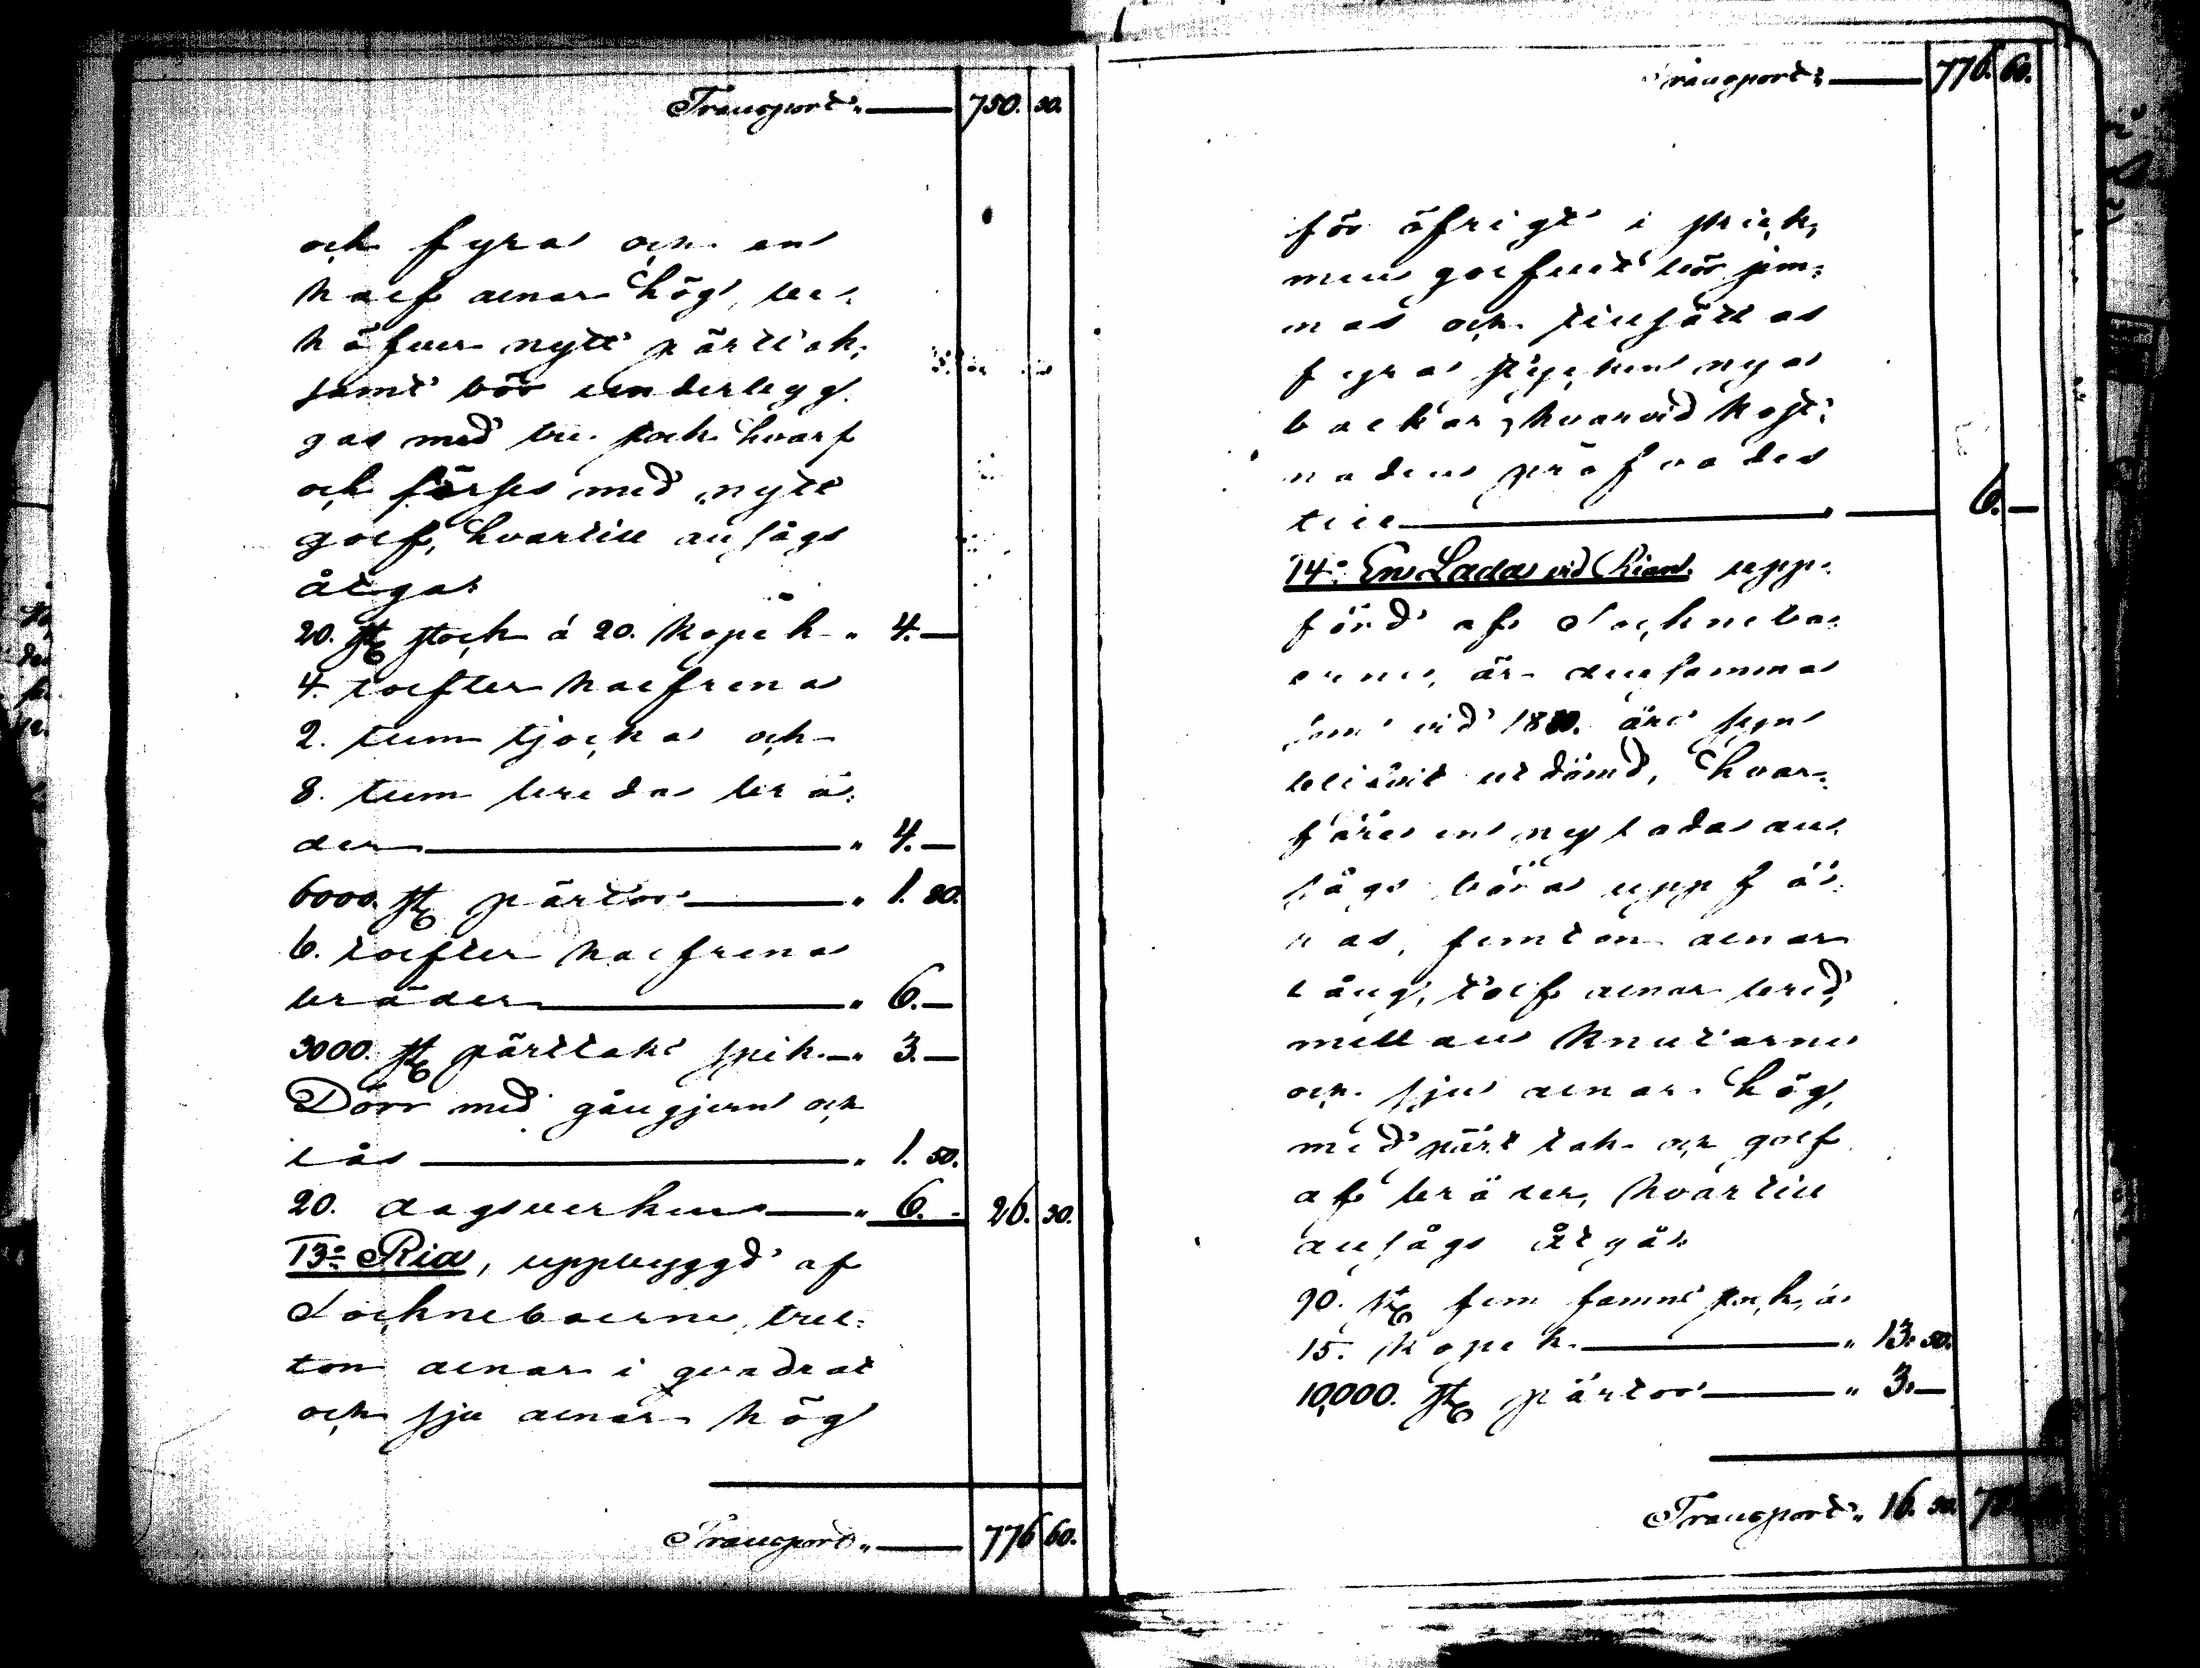 Transport „ 750. 30.
och fyra och en
half alnar hög, be-
höfver nytt pärttak,
samt bör underlägg-
gas med tre stock hvarf
och förses med nytt
golf, hvartill ansågs
åtgå:
20. st stock á 20. kopek „ 4.—
4. tolfter halfrena
2. tum tjocka och
8. tum breda brä-
der „ 4.—
6000. st pärtor „ 1. 80.
6. tolfter halfrena
bräder „ 6.—
3000. st pärttaks spik „ 3.—
Dörr med gångjern och
lås „ 1. 50.
20. dagsverken „ 6.- 26. 30.
13:o Ria, uppbyggd af
Sockneboerne, tret-
ton alnar i qvadrat
och sju alnar hög
Transport „ 776 60.
Transport: 776. 60.
för öfrigt i skick,
men golfvet bör jem-
nas och tillsättas
fyra stycken nya
balkar, hvarvid kost-
naden pröfvades
till 6.—
14:o En Lada vid Rian, upp-
förd af Socknebo-
erne, är densamma
som vid års syn
blifvit utdömd, hvar-
före en ny lada an-
sågs böra uppfö-
ras, femton alnar
lång, tolf alnar bred,
mellan knutarne
och sju alnar hög,
med pärttak och golf
af bräder, hvartill
ansågs åtgå:
90. st fem famns stock, á
15. kopek „ 13. 50.
10,000. st pärtor „ 3.—
Transport „ 16. 50.